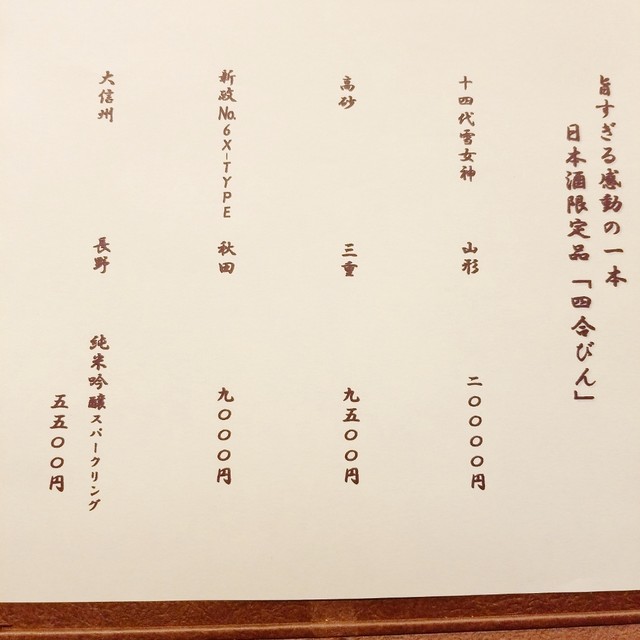 旨すぎる感動の一本
日本酒限定品「四合びん」
十四代雪女神 山形 二〇〇〇〇円
高砂 三重 九五〇〇円
新政No.6X-TYPE 秋田 九〇〇〇円
大信州 長野 純米吟醸スパークリング
五五〇〇円